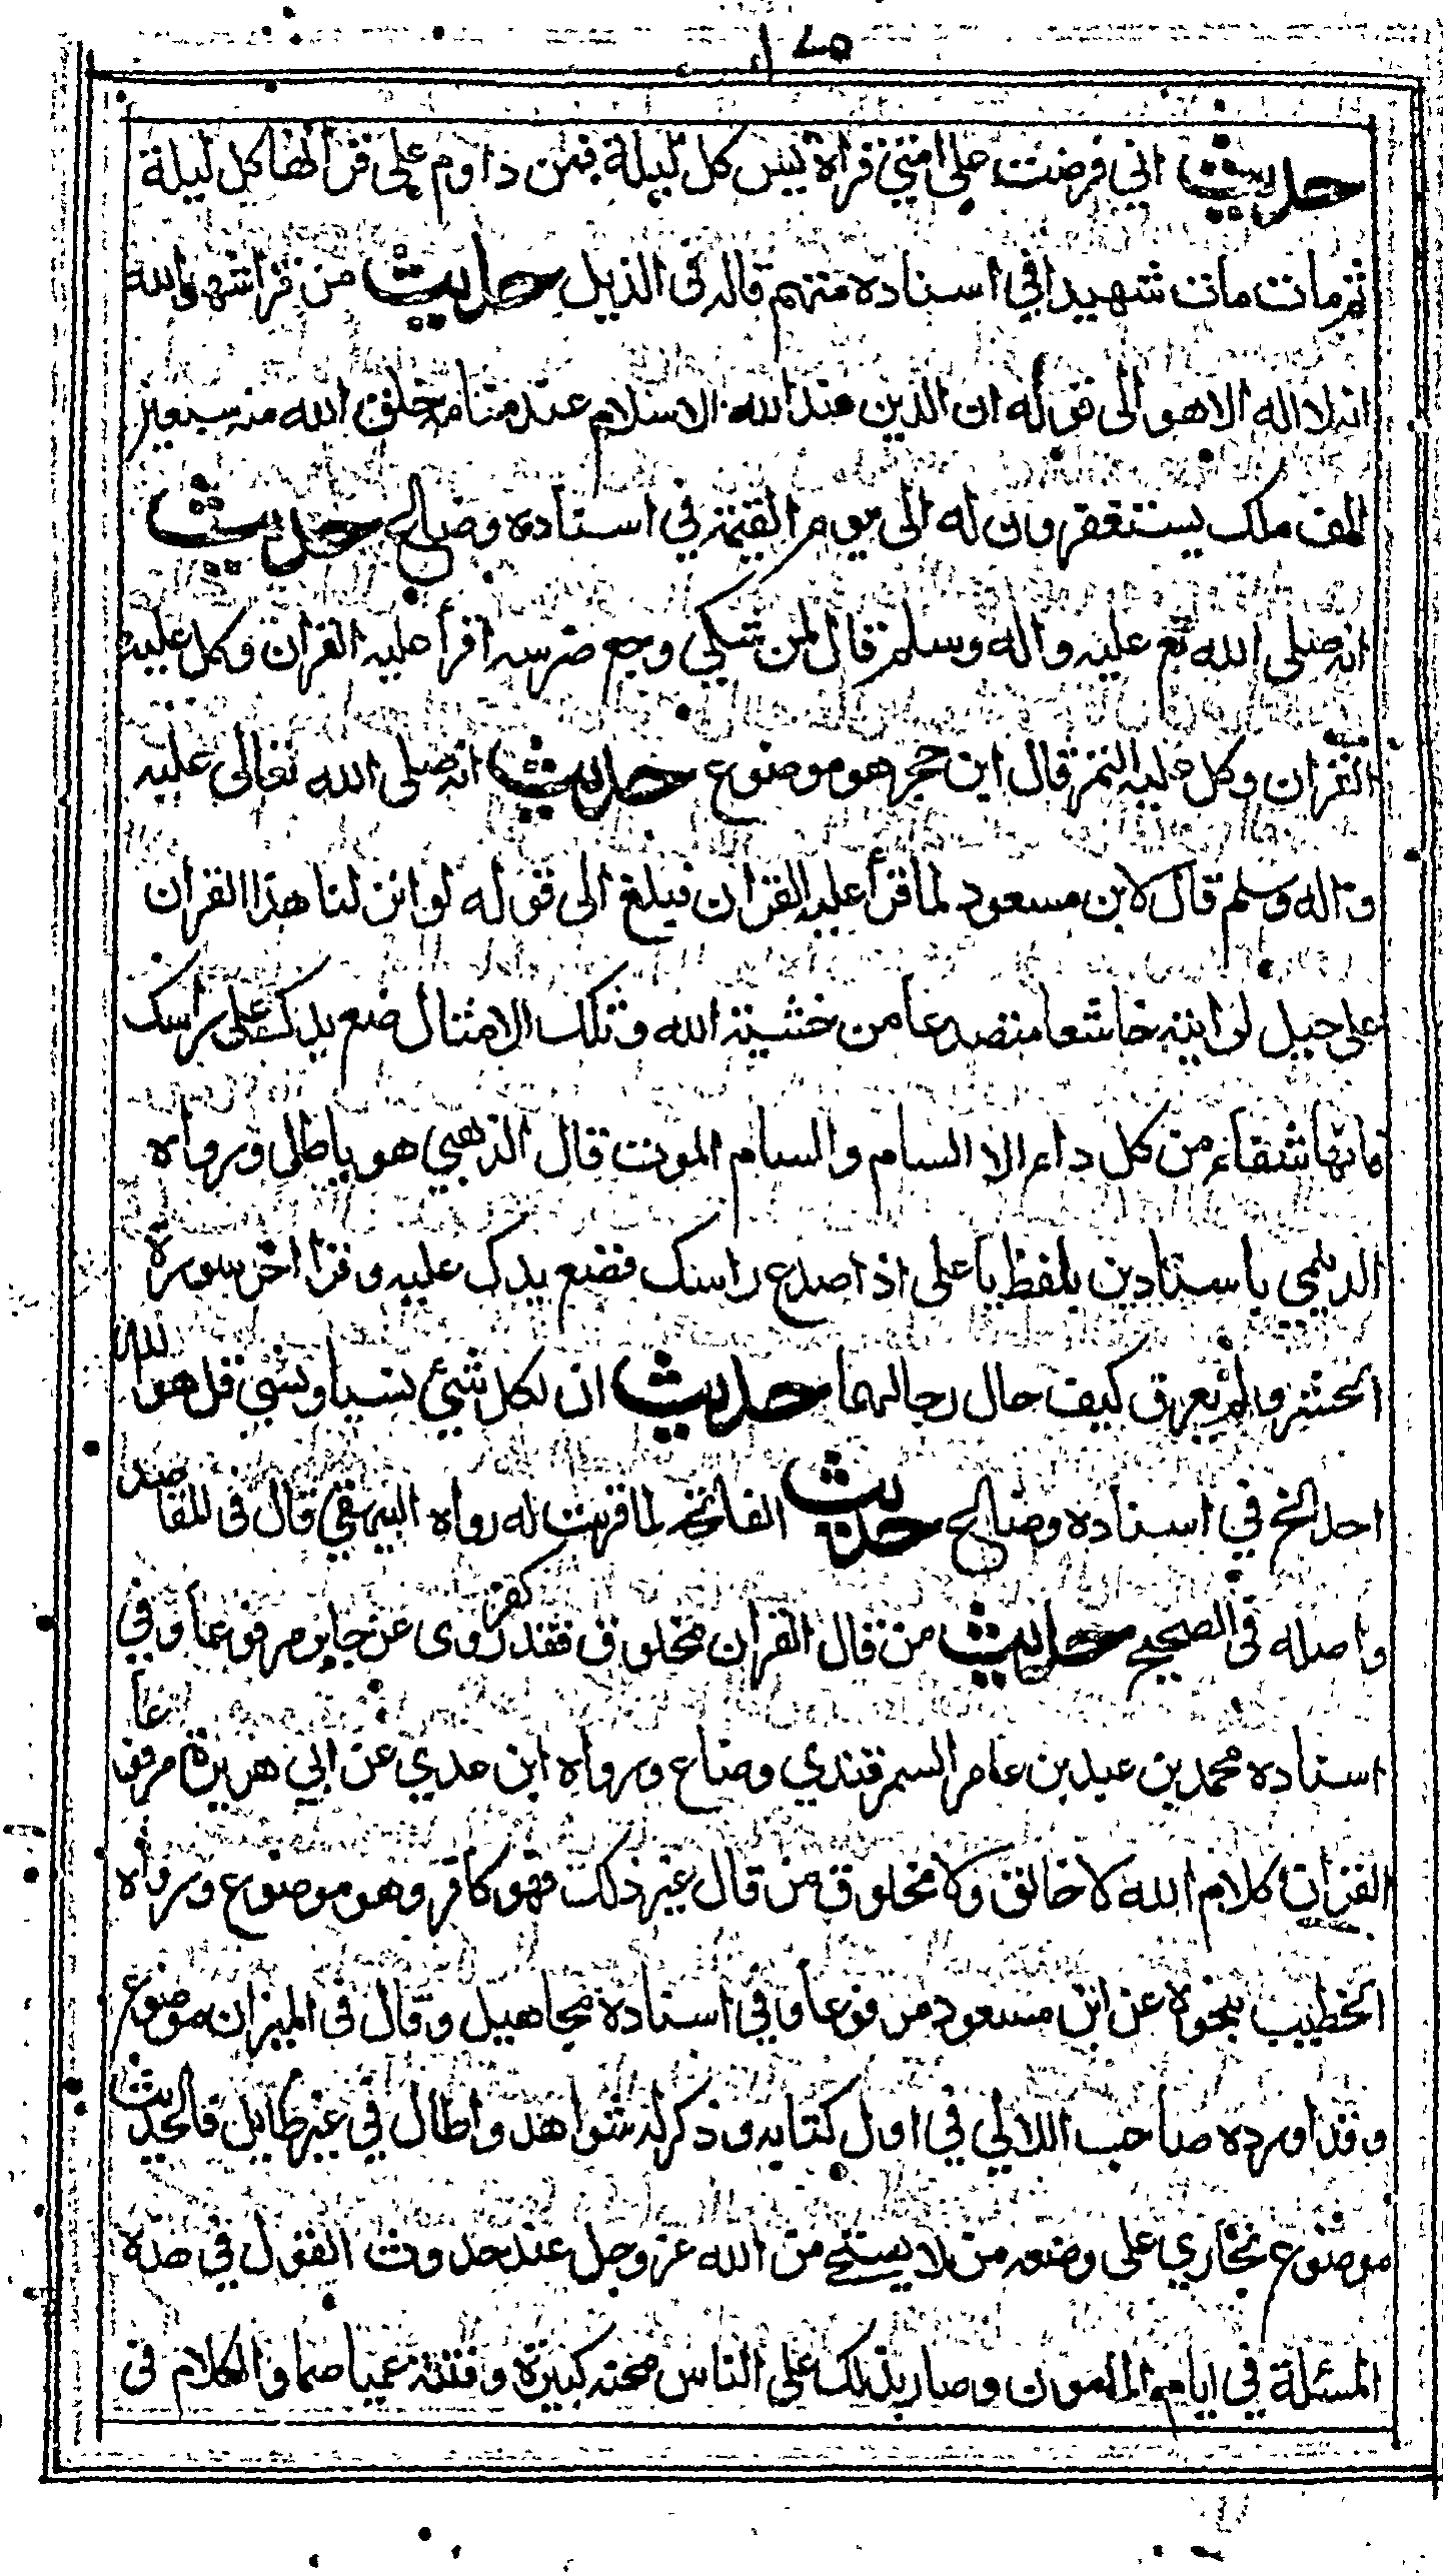 حديث اني فرضت على امتي قراة يس كل ليلة فمن داوم على قراتها كل ليلة
ثم مات مات شهيدا في اسناده متهم قاله في الذيل حديث من قرا شهد الله
انه لا اله الا هو الى قوله ان الدين عند الله الاسلام عند منامه خلق الله منه سبعين
الف ملك يستغفرون له الى يوم القيمة في اسناده وضاع حديث
انه صلى الله تع عليه واله وسلم قال لمن شكى وجع ضرسه اقرأ عليه القران وكل عليه
القران وكل عليه التمر قال ابن حجر هو موضوع حديث انه صلى الله تعالى عليه
واله وسلم قال لابن مسعود لما قرأ عليه القران فبلغ الى قوله لو انزلنا هذا القران
على جبل لرايته خاشعا متصدعا من خشية الله وتلك الامثال ضع يدك على راسك
فانها شفاء من كل داء الا السام والسام الموت قال الذهبي هو باطل ورواه
الديلمي باسنادين بلفظ يا على اذا صدع راسك فضع يدك عليه وقرا اخر سورة
الحشر ولم يعرف كيف حال رجالهما حديث ان لكل شئ نسبا ونسبتي قل هو الله
احد الخ في اسناده وضاع حديث الفاتحة لما قريت له رواه البيهقي قال في المقاصد
واصله في الصحيح حديث من قال القران مخلوق فقد كفر روى عن جابر مرفوعا وفي
اسناده محمد بن عبد بن عامر السمرقندي وضاع ورواه ابن عدي عن ابي هريرة مرفوعا
القران كلام الله لا خالق ولا مخلوق من قال غير ذلك فهو كافر وهو موضوع ورواه
الخطيب بنحوه عن ابن مسعود مرفوعا وفي اسناده مجاهيل وقال في الميزان موضوع
وقد اورده صاحب اللالي في اول كتابه وذكر له شواهد واطال في غير طايل فالحديث
موضوع تجاري على وضعه من لا يستحي من الله عز وجل عند حدوث القول في هذه
المسئلة في ايام المامون وصار بذلك على الناس محنة كبيرة وفتنة عميا صما والكلام في